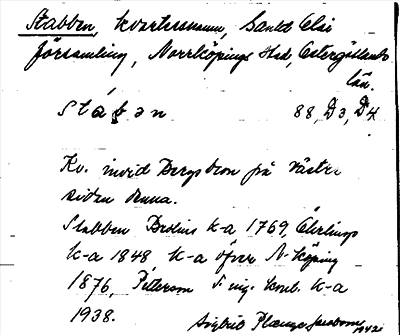 Stabben, kvartersnamn, Sankt Olai
församling, Norrköpings stad, Östergötlands
län.
Stábən 88, D3, D4
Kv. invid Bergsbron på västra
sidan denna.
Stabben Brolins k-a 1769, Ehrlings
k-a 1848 K-a öfver N-köping
1876, Pettersson S. ing. komb. k-a
1938.
Sigbrit Plænge Jacobson 1942.